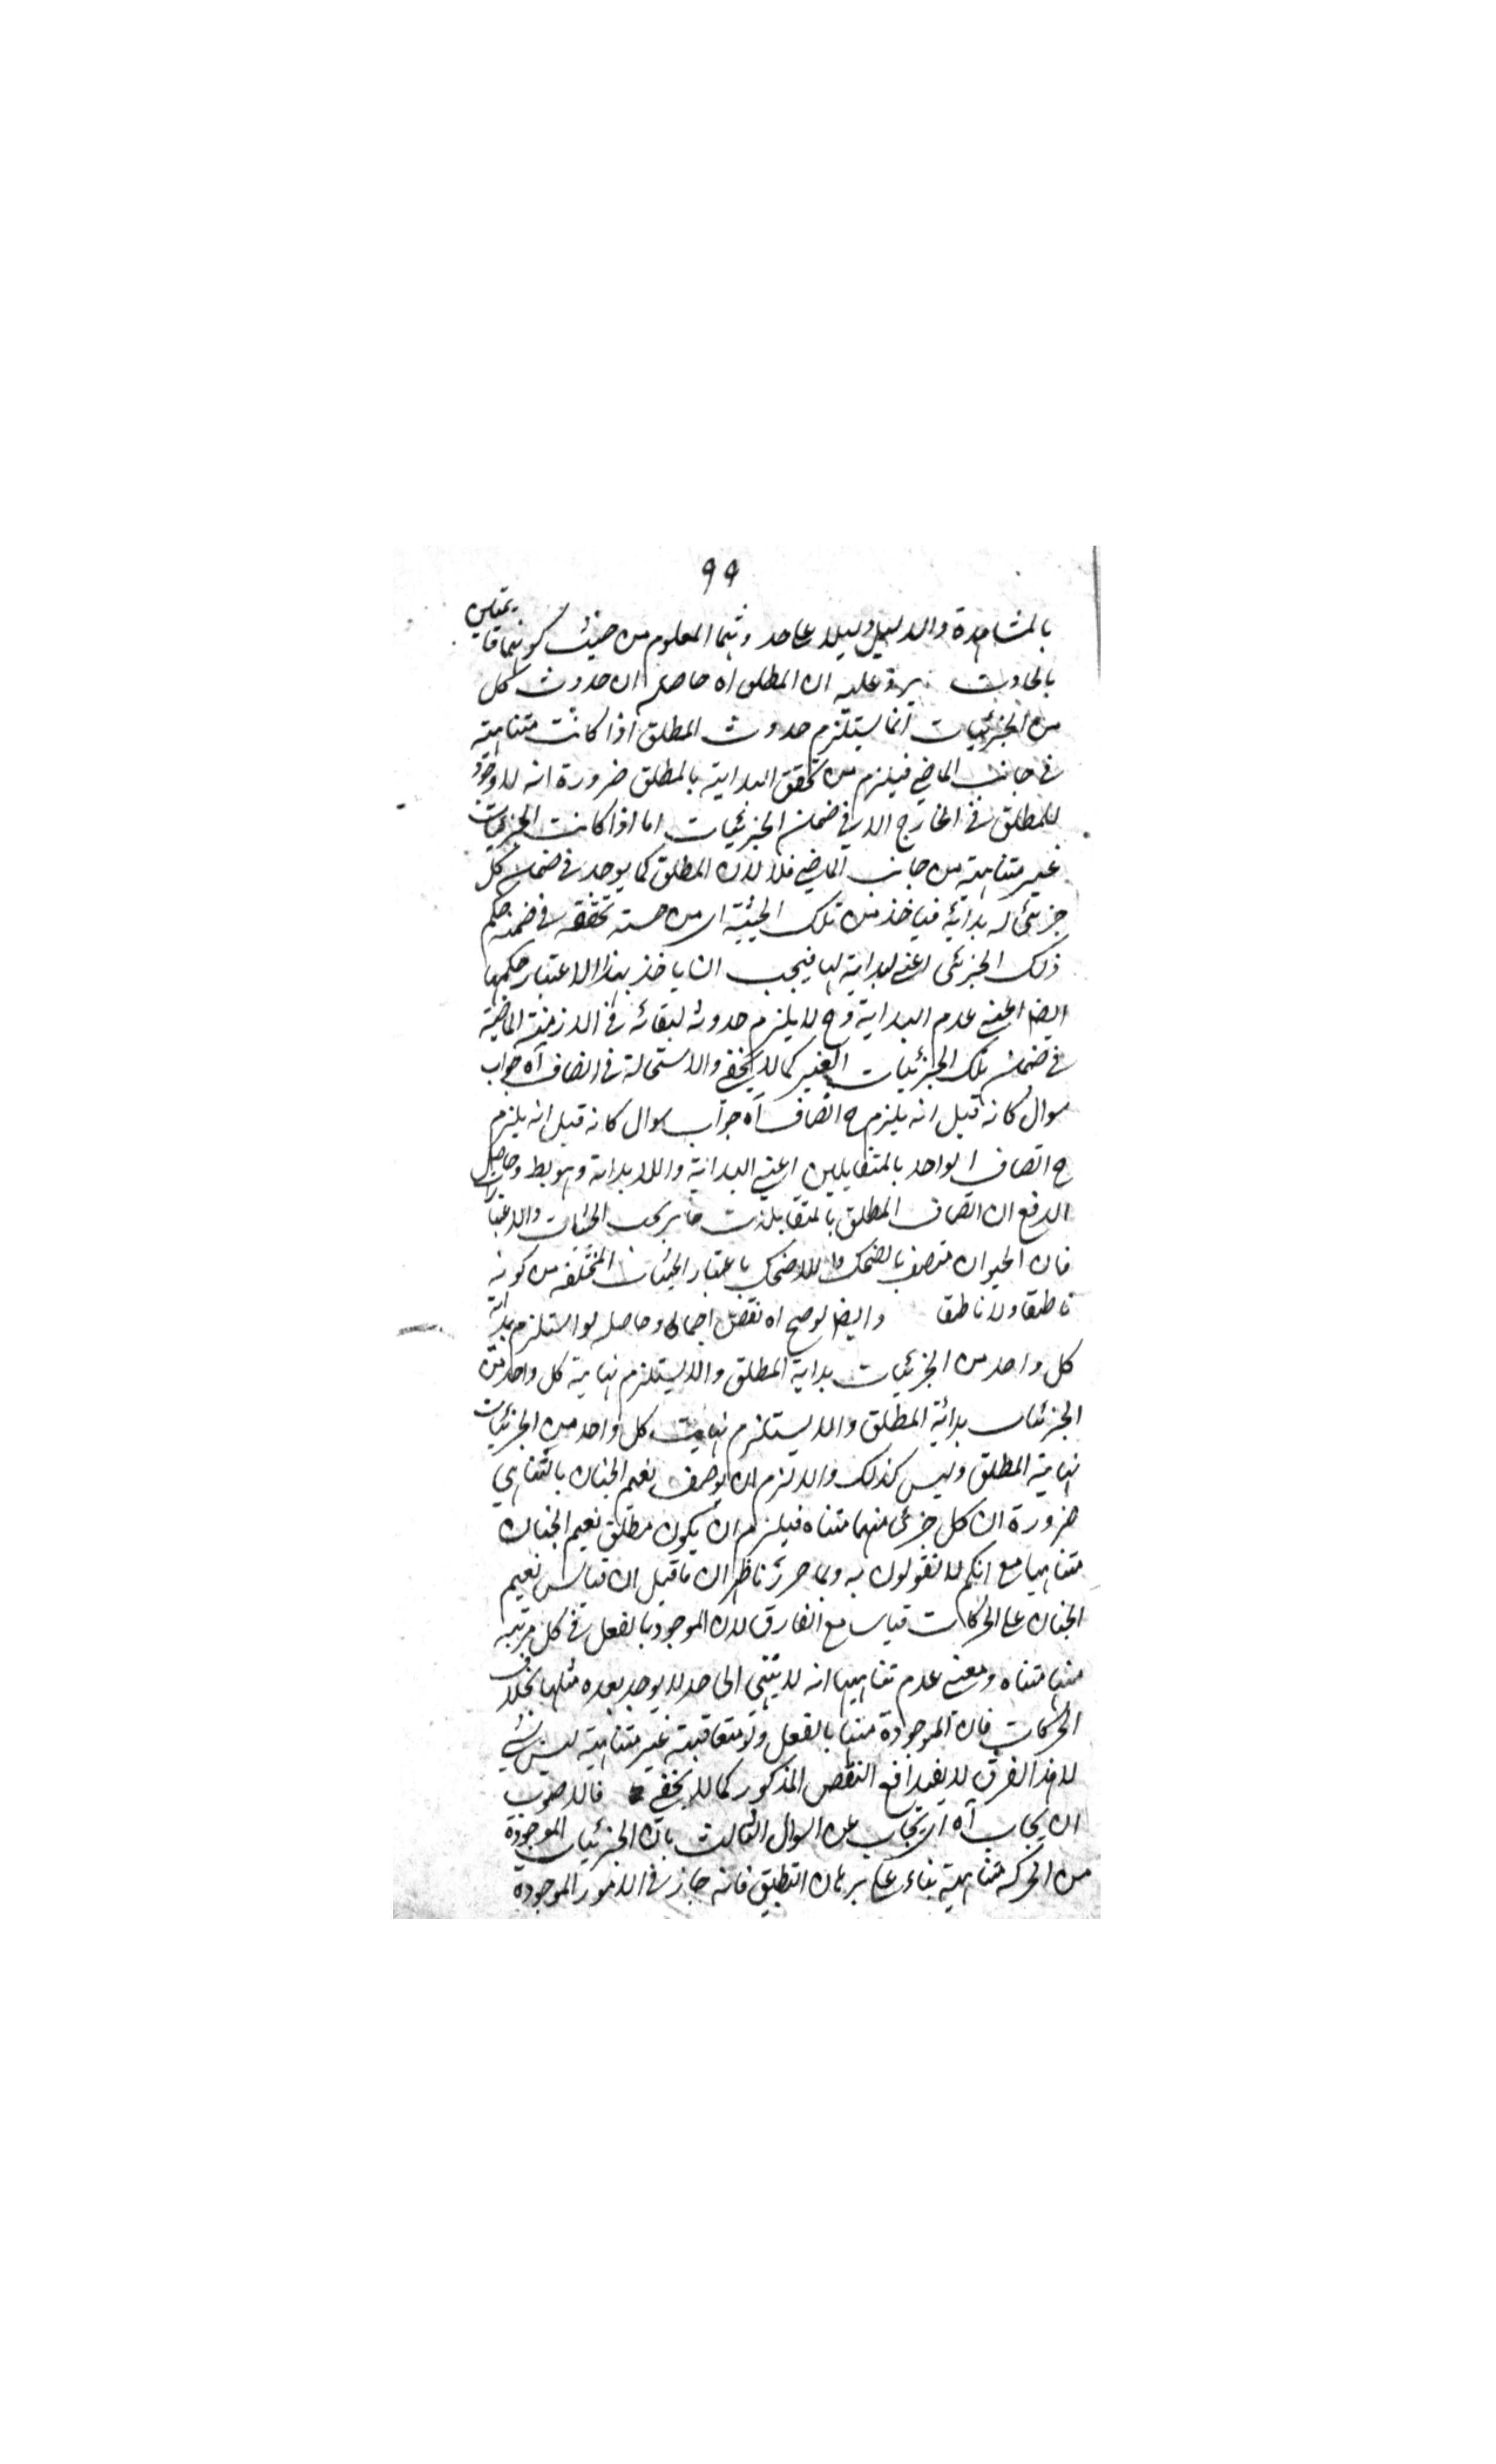 ٩٩
بالمشاهدة والدليل دليلا على حدوثهما المعلوم من حيث كونهما قايمين
بالحادث يرد عليه ان المطلق اه حاصله ان حدوث كل
من الجزئيات انما يستلزم حدوث المطلق اذا كانت متناهية
في جانب الماضي فيلزم من تحقق البداية بالمطلق ضرورة انه لا وجود
للمطلق في الخارج الا في ضمن الجزئيات اما اذا كانت الجزئيات
غير متناهية من جانب الماضي فلا لان المطلق كما يوجد في ضمن كل
جزئي له بداية فياخذ من تلك الحيثية اي من حيث تحققه في ضمنه حكم
ذلك الجزئي اعني البداية لها فيجب ان ياخذ بهذا الاعتبار حكمها
ايضا اعني عدم البداية وح لا يلزم حدوثه لبقائه في الازمنة الماضية
في ضمن تلك الجزئيات الغير كما لا يخفى والاستحالة في اتصاف اه جواب
سوال كانه قيل انه يلزم ح اتصاف اه جواب سوال كانه قيل انه يلزم
ح اتصاف الواحد بالمتقابلين اعني البداية واللابداية وهو بط وحاصل
الدفع ان اتصاف المطلق بالمتقابلات جايز بحسب الحيثيات والاعتبارات
فان الحيوان متصف بالضحك واللاضحك باعتبار الحيثيات المختلفة من كونه
ناطقا ولا ناطقا وايضا لو صح اه نقض اجمالي وحاصله لو استلزم بداية
كل واحد من الجزئيات بداية المطلق والا يستلزم نهاية كل واحد من
الجزئيات بداية المطلق والا يستلزم نهايت كل واحد من الجزئيات
نهاية المطلق وليس كذلك والا لزم ان يوصف نعيم الجنان بالتناهي
ضرورة ان كل جزئي منهما متناه فيلزم ان يكون مطلق نعيم الجنان
متناهيا مع انكم لا تقولون به وبما حررنا ظهر ان ما قيل ان قياس نعيم
الجنان على الحركات قياس مع الفارق لان الموجود بالفعل في كل مرتبة
منها متناه ومعنى عدم تناهيها انه لا ينتهي الى حد لا يوجد بعده مثلها بخلاف
الحركات فان الموجودة منها بالفعل ولا متعاقبة غير متناهية ليس بشي
لان هذا الفرق لا يفيد دافع النقض المذكور كما لا يخفى فالاصوب
ان يجاب اه اي يجاب عن السوال الثالث بان الجزئيات الموجودة
من الحركة متناهية بناء على برهان التطبيق فانه جاز في الامور الموجودة